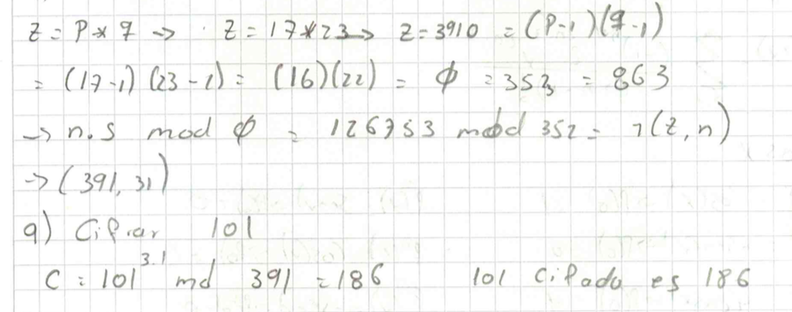 z = p * q -> z = 17*23 -> z = 391 φ = (p-1)(q-1)
= (17-1)(23-1) = (16)(22) = φ = 352 = 863
-> n.s mod φ = 126753 mod 352 = 1(z,n)
-> (391, 31)
a) Cifrar 101
C = 101^31 md 391 = 186 101 cifado es 186